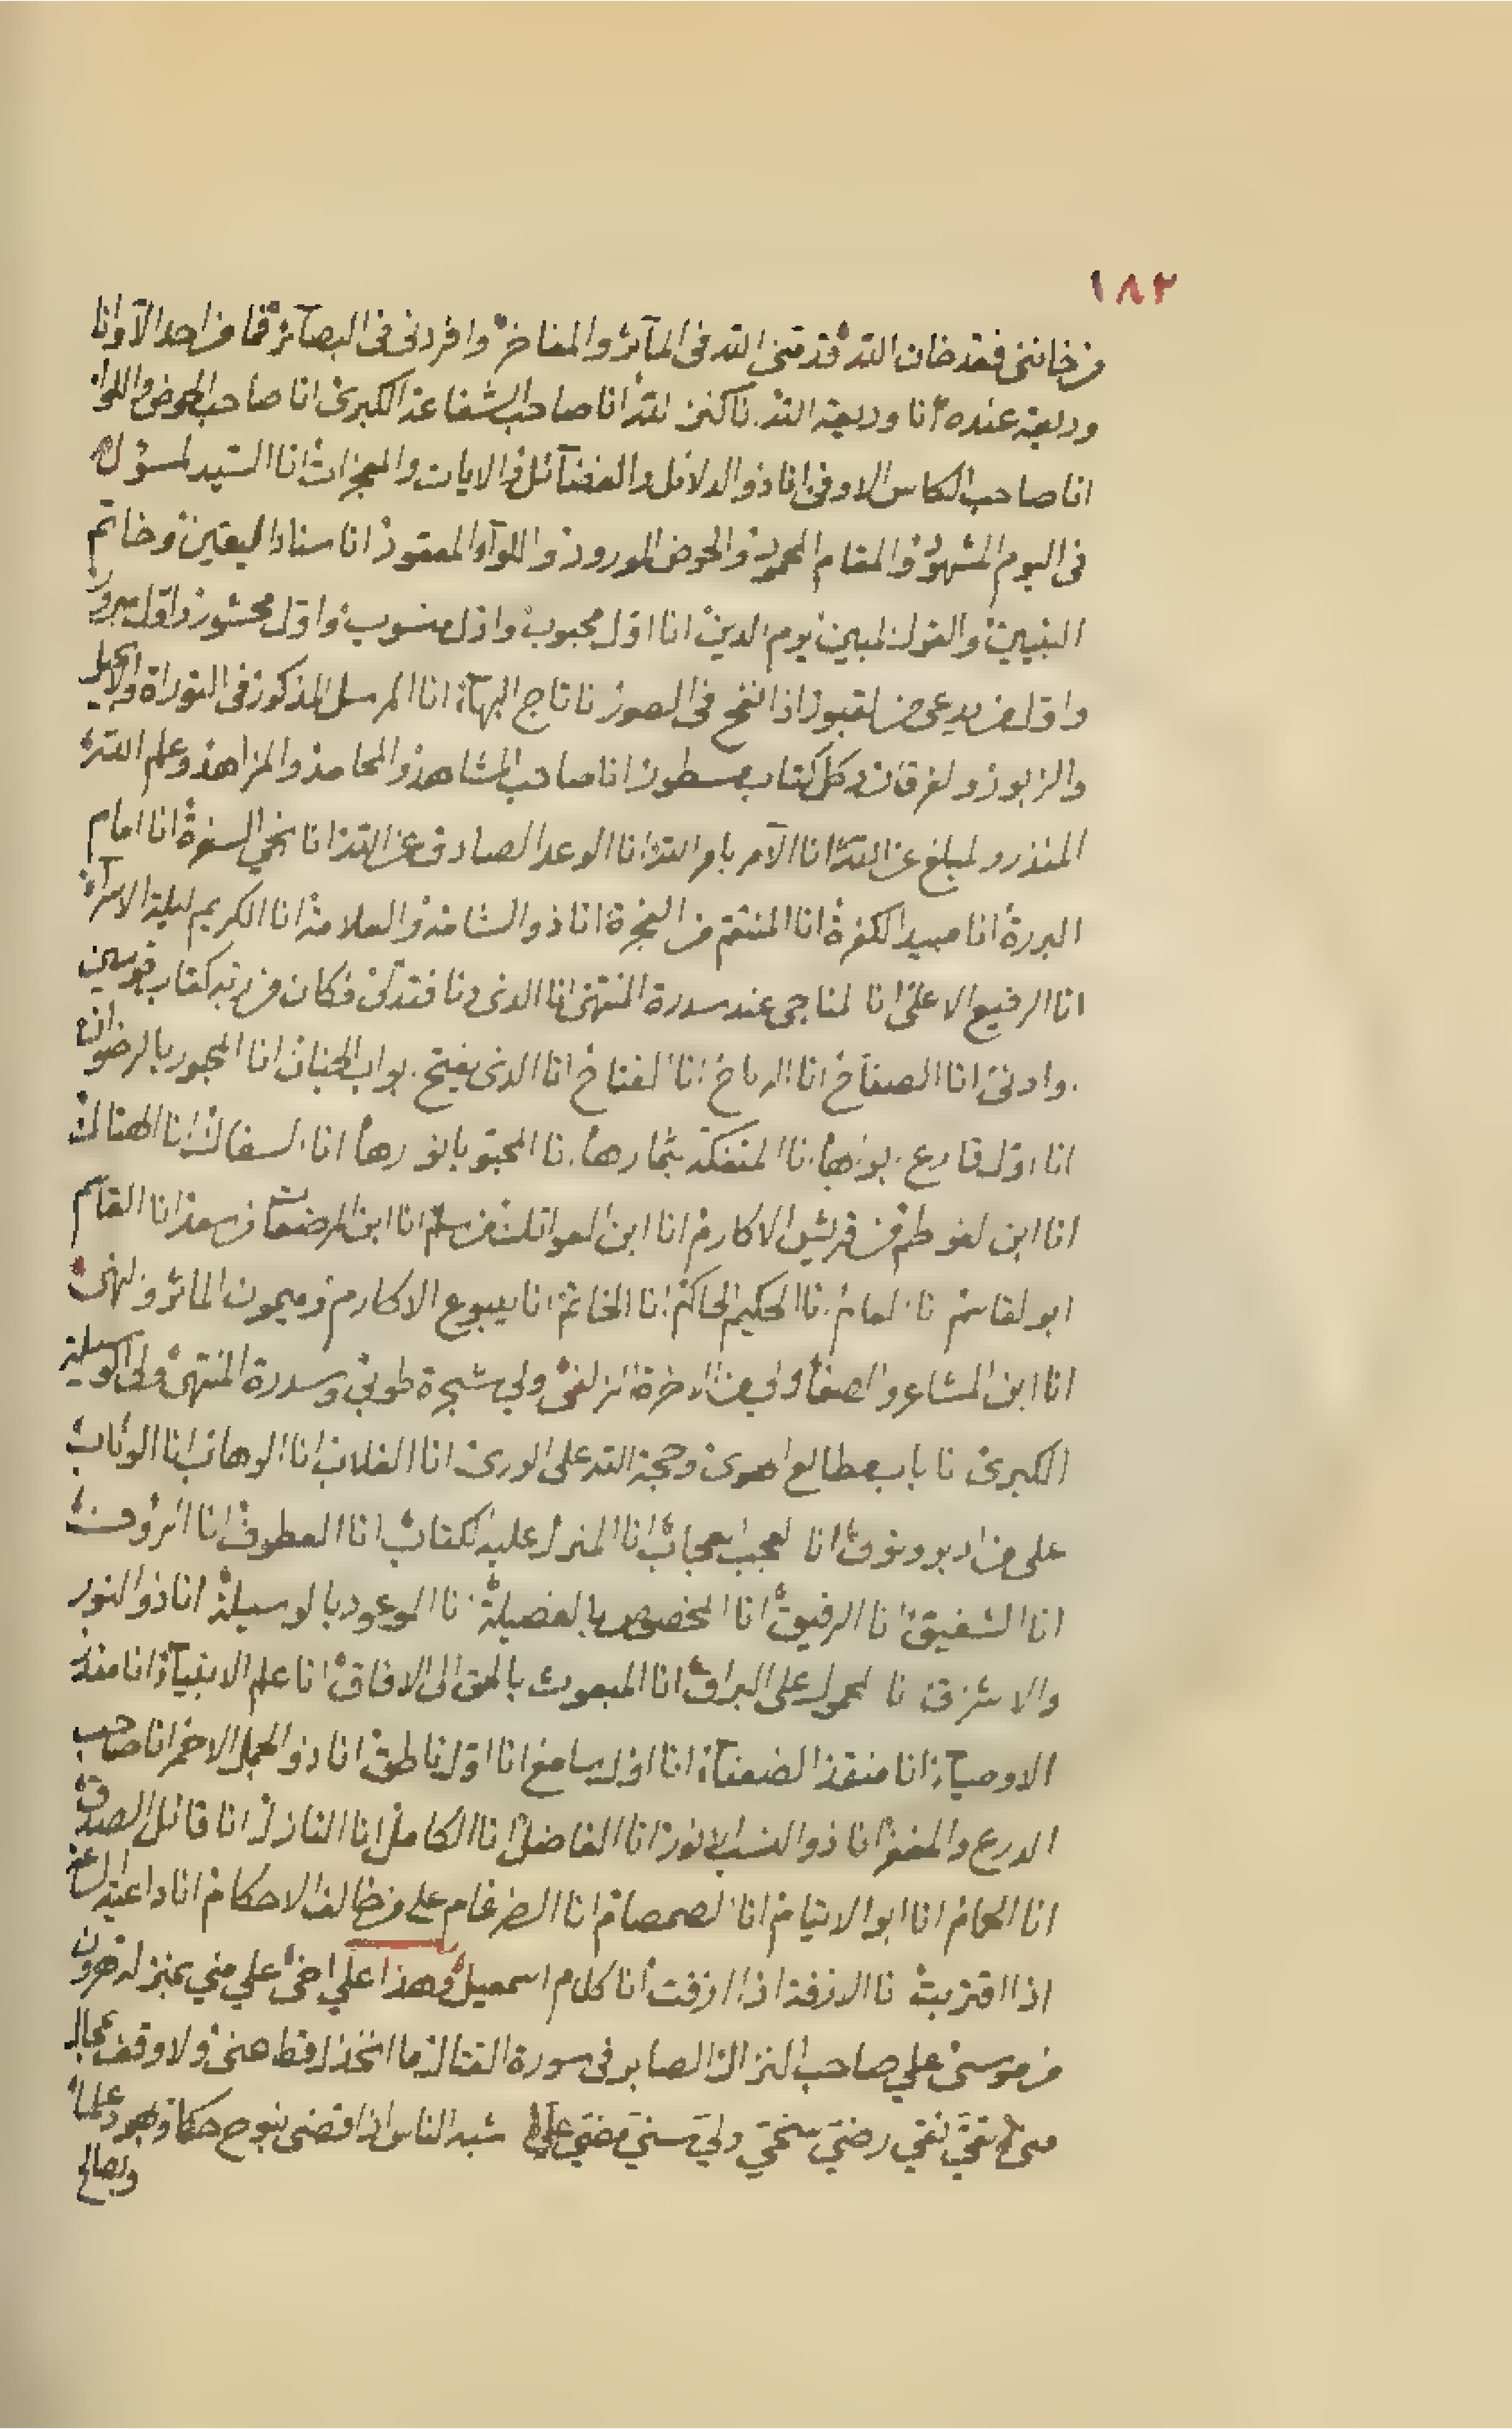 ١٨٢
من خانني فقد خان الله قدمني الله في المآثر والمفاخر وافردني في البصآئر فما من احد الآ وانا
وديعة عنده انا وديعة الله انا كنز الله انا صاحب الشفاعة الكبرى انا صاحب الحوض واللوا
انا صاحب الكاس الاوفى انا ذو الدلائل والفضآئل والايات والمعجزات انا السيد المسؤل
في اليوم المشهود والمقام المحمود والحوض المورود واللوآء المعقود انا سناد اليقين وخاتم
النبيين والقول المبين يوم الدين انا اول محبوب واول منسوب واول محشور واول مبرور
واول من يدعى من القبور اذا نفخ في الصور انا تاج البهآء انا المرسل المذكور في التوراة والانجيل
والزبور والفرقان وكل كتاب مسطور انا صاحب المشاهد والمحامد والمزاهد وعلم الله
المنذر والمبلغ عن الله انا الآمر بامر الله انا الوعد الصادق عن الله انا نجي السفرة انا امام
البررة انا مبيد الكفرة انا المنتقم من الفجرة انا ذو الشامة والعلامة انا الكريم ليلة الاسرآء
انا الرفيع الاعلى انا المناجى عند سدرة المنتهى انا الذى دنا فتدلى فكان من ربه كقاب قوسين
او ادنى انا الصفاح انا الرباح انا الفتاح انا الذى يفتح ابواب الجنان انا المحبور بالرضوان
انا اول قارع ابوابها انا المتفكه بثمارها انا المحبو بانوارها انا السفاك انا الهتاك
انا ابن الفواطم من قريش الاكارم انا ابن العواتك من سليم انا ابن المرضعات من سعد انا القاسم
ابو القاسم انا العالم انا الحكيم الحاكم انا الخاتم انا ينبوع الاكارم وميمون المآثر والنهى
انا ابن المشاعر والصفا ولي من الاخرة الزلفى ولي شجرة طوبى وسدرة المنتهى ولي الوسيلة
الكبرى انا باب مطالع الهدى وحجة الله على الورى انا الغلاب انا الوهاب انا الوثاب
على من ادبر وتوى انا العجب العجاب انا المنزل عليه الكتاب انا العطوف انا الرؤف
انا الشفيق انا الرفيق انا المخصوص بالفضيلة انا الموعود بالوسيلة انا ذو النور
والاشراق انا المحمول على البراق انا المبعوث بالحق الى الافاق انا علم الانبيآء انا منذر
الاوصيآء انا منقذ الضعفآء انا اول سامع انا اول ناطق انا ذو الجمل الاحمر انا صاحب
الدرع والمغفر انا ذو النسب الانور انا الفاضل انا الكامل انا النازل انا قائل الصدق
انا الحمام انا ابو الايتام انا الصمصام انا الضرغام على من خالف الاحكام انا داعية الساعة
اذا اقتربت انا الازفة اذا ازفت انا كلام اسمعيل وهذا علي اخى علي مني بمنزلة هرون
من موسى علي صاحب النزال الصابر في سورة القتال ما انخذل قط عنى ولا وقف بمجال
تقي نقي رضي سخي ولي سني اشبه الناس اذا قضى بنوح حكما وبهود علما
وبصالح